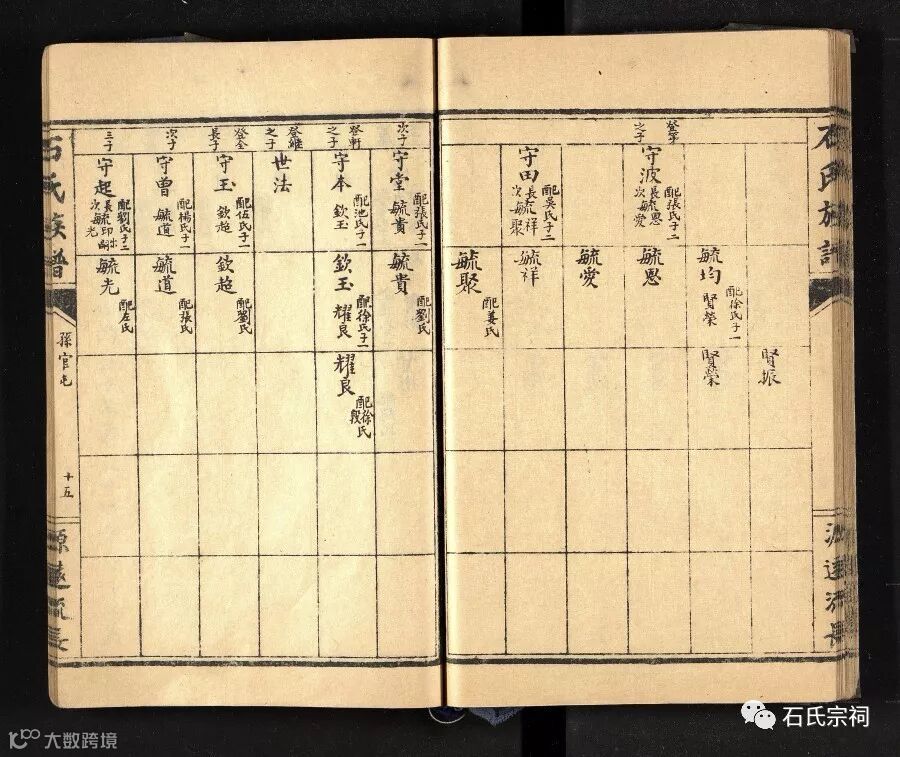 石氏族譜
源遠流長
賢振
毓均
配徐氏子一
賢榮
賢榮
登字
之子
守波
配張氏子二
長毓恩
次毓愛
毓恩
毓愛
守田
配吳氏子二
長毓祥
次毓聚
毓祥
毓聚
配姜氏
次子
守堂
配張氏子一
毓貴
毓貴
配劉氏
登軒
之子
守本
配池氏子一
欽玉
欽玉
配徐氏子一
耀良
耀良
配徐段氏
登維
之子
世法
登全
長子
守玉
配伍氏子一
欽超
欽超
配劉氏
次子
守曾
配楊氏子一
毓道
毓道
配張氏
三子
守起
配劉氏子二
長毓印出嗣
次毓光
毓光
配左氏
石氏族譜
孫官屯
十五
源遠流長
石氏宗祠
大数跨境